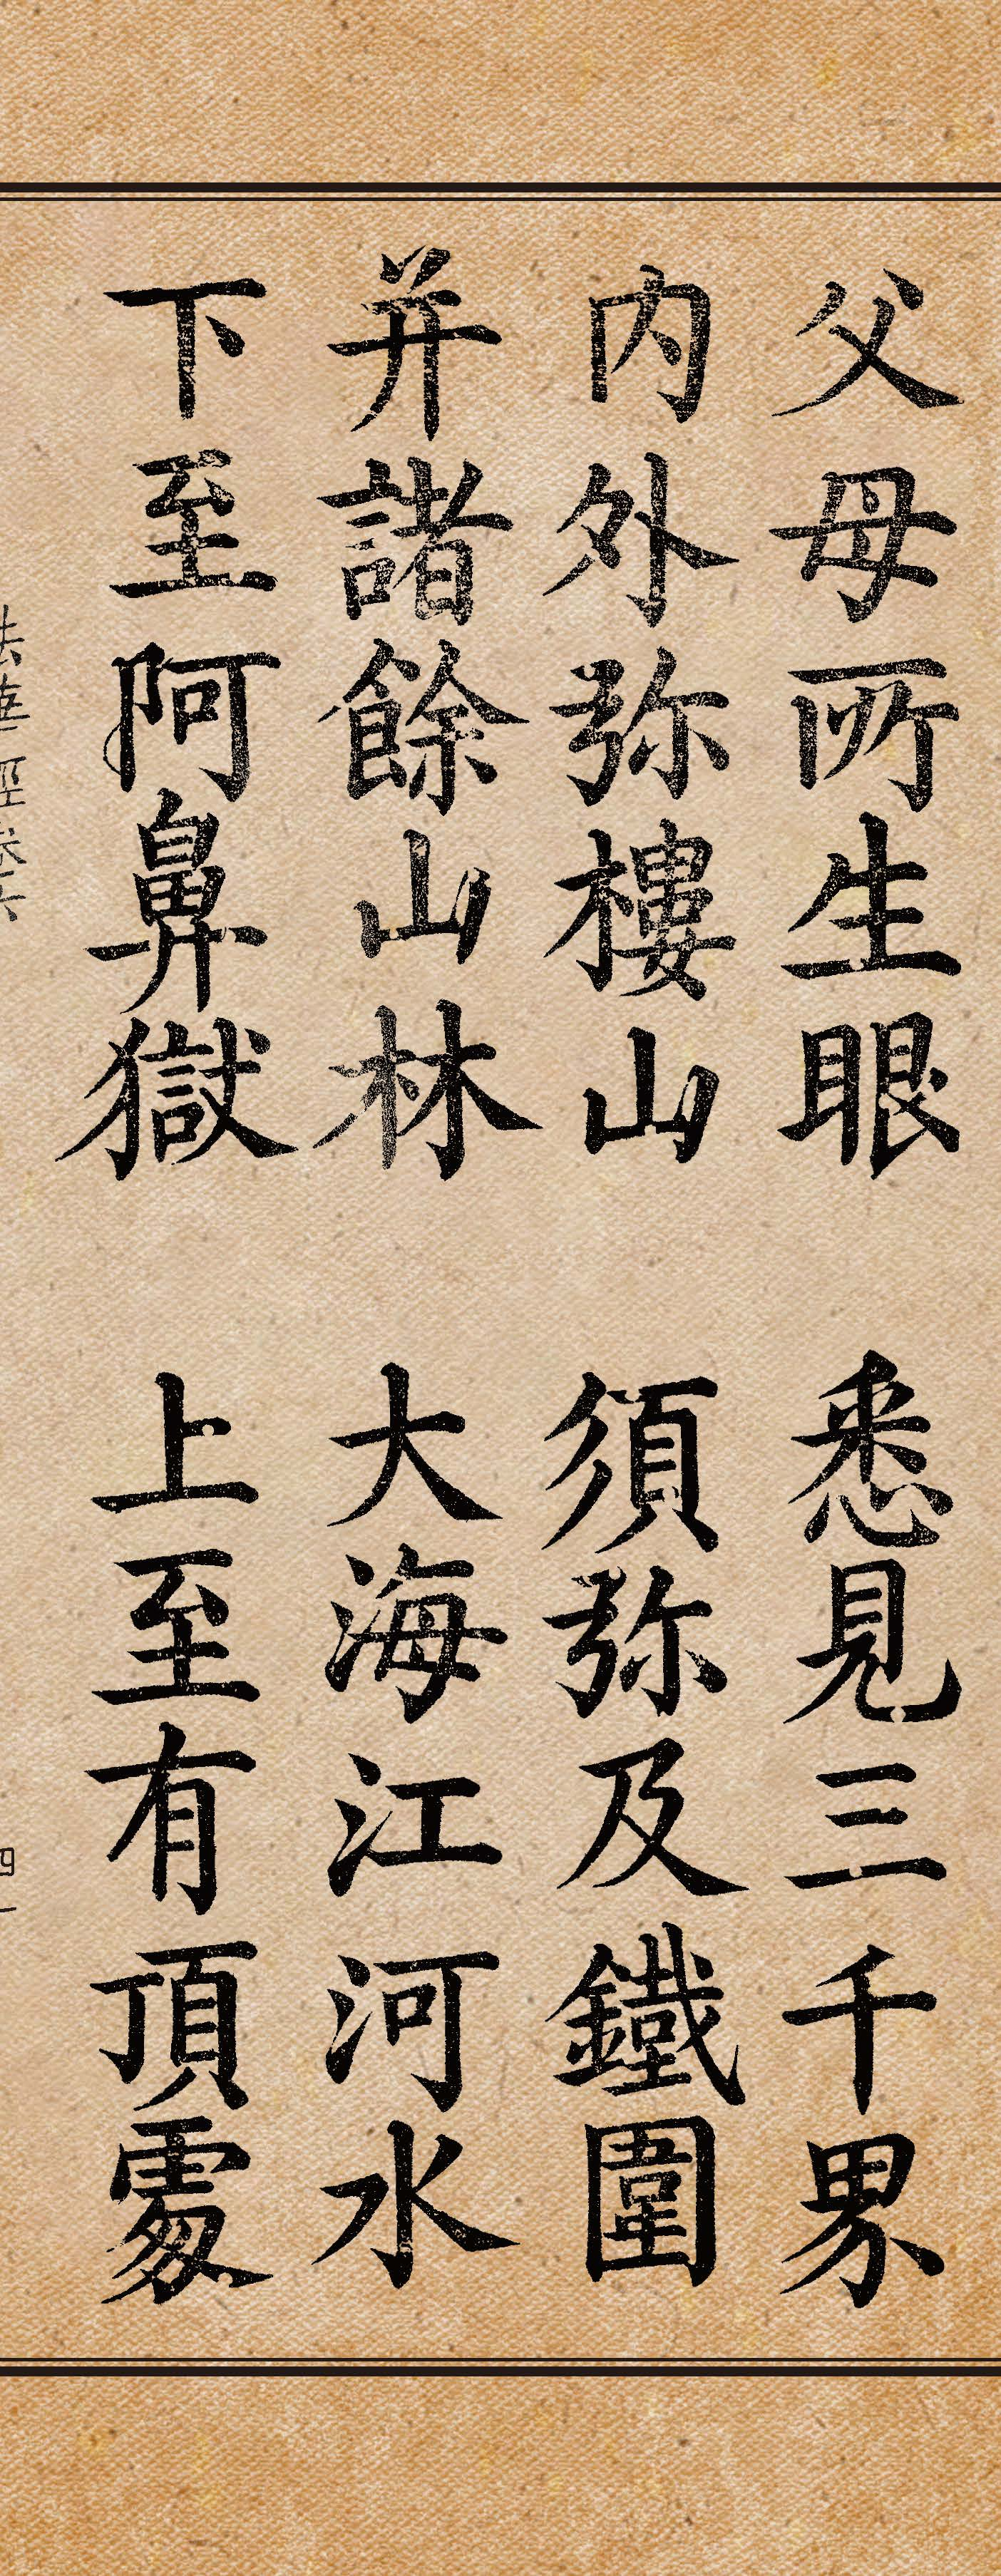 父母所生眼 悉見三千界
内外弥樓山 須弥及鐵圍
并諸餘山林 大海江河水
下至阿鼻獄 上至有頂處
法華經卷六
四一